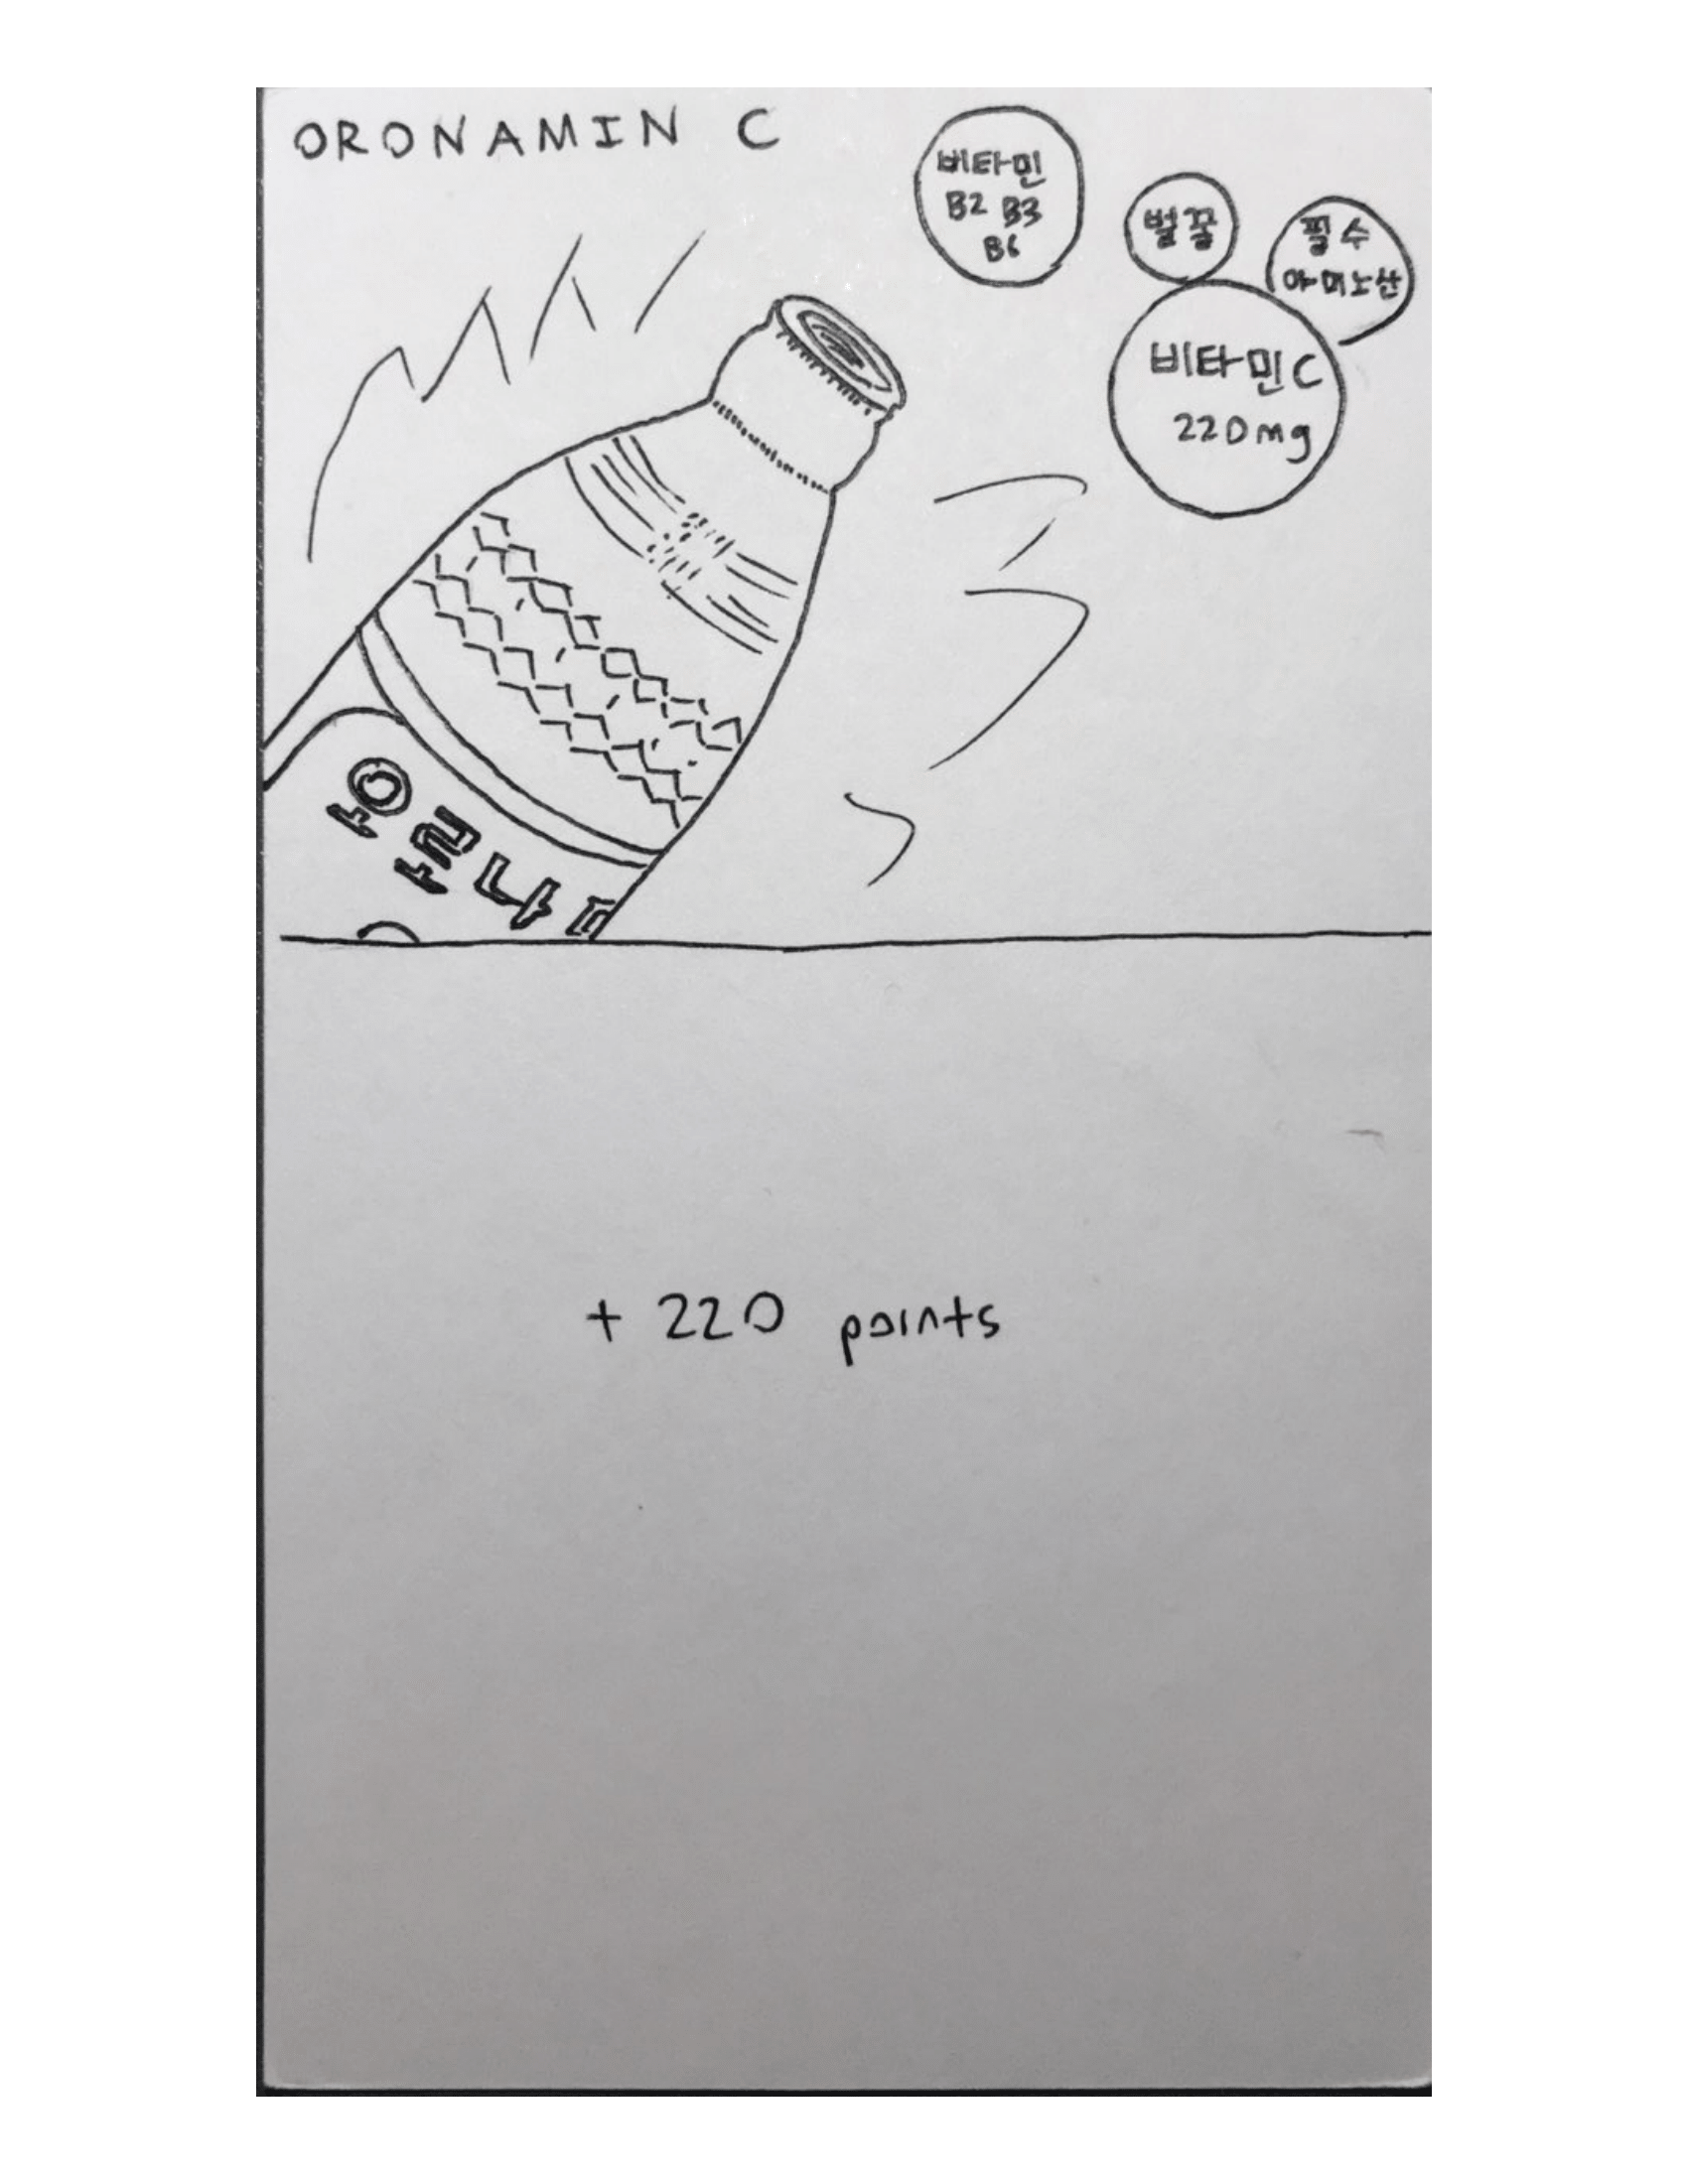 ORONAMIN C
비타민
B2 B3
B6
벌꿀
필수
아미노산
비타민 C
220mg
오로나
+ 220 points